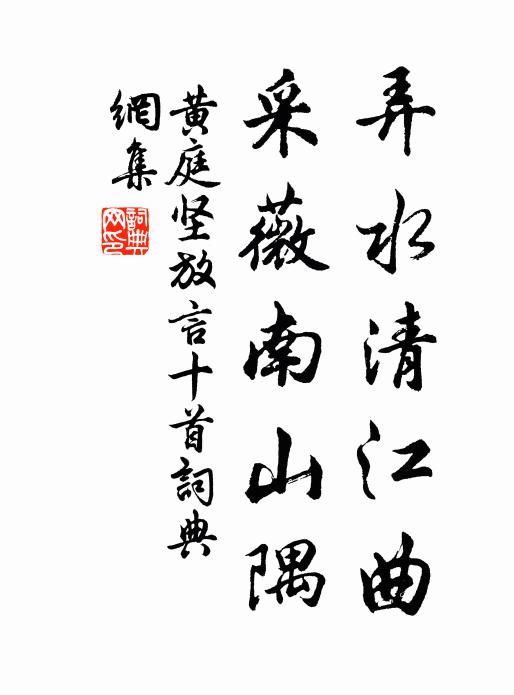 弄水清江曲
采薇南山隅
黄庭坚放言十首詞典
網集
詞典
网印